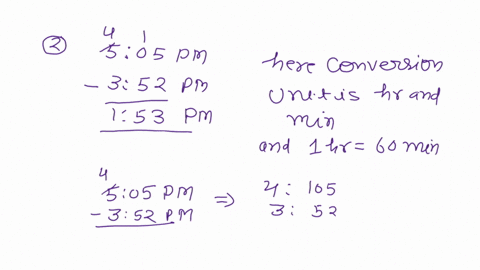 ②
4 1
5:05 PM
- 3:52 PM
1:53 PM
here conversion
unit is hr and
min
and 1 hr = 60 min
4
5:05 PM
- 3:52 PM
⇒ 4: 105
3: 52